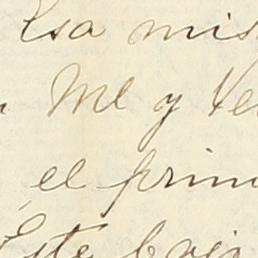 Esa mis
Me y Ve
el prim
Este bajo